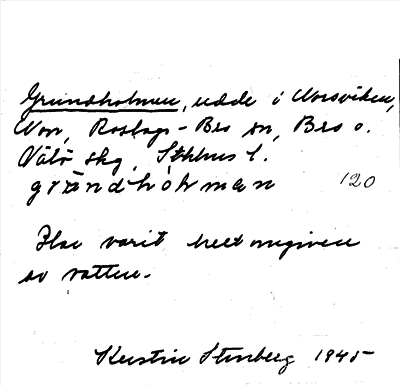 Grundholmen, udde i Norsviken,
Norr, Roslags-Bro sn, Bro o.
Vätö skg, Sthlms l.
grændhòlman 120
Har varit helt omgiven
av vatten.
Kerstin Stenberg 1945